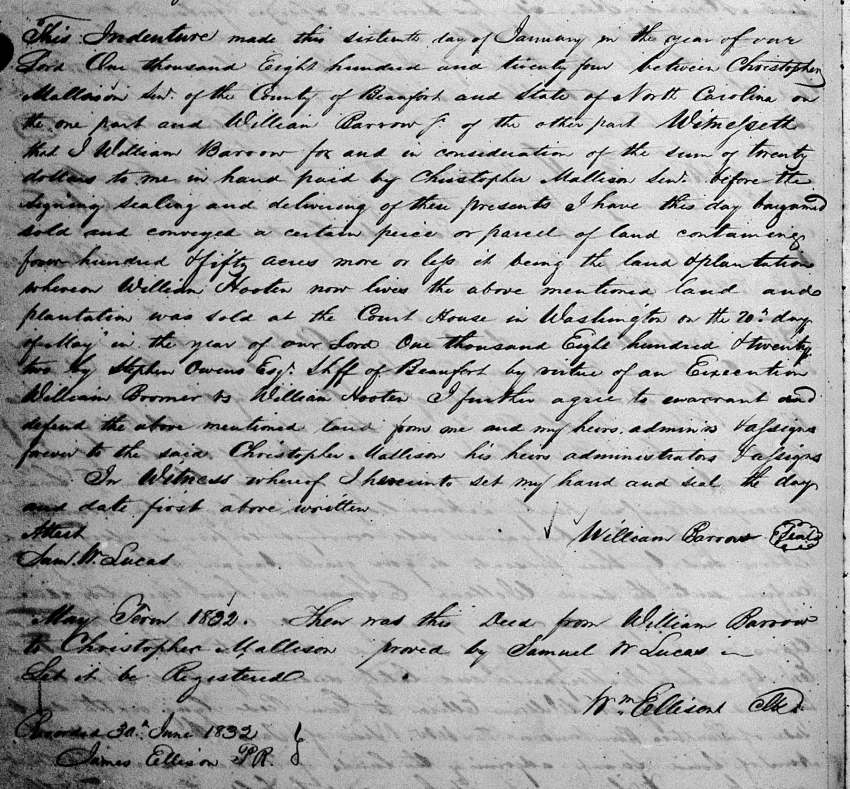 This Indenture made this sixteenth day of January in the year of our
Lord One thousand Eight hundred and twenty four between Christopher
Mallison Senr. of the County of Beaufort and State of North Carolina on
the one part and William Barrow Jr of the other part Witnesseth
that I William Barrow for and in consideration of the sum of twenty
dollars to me in hand paid by Christopher Mallison Senr. before the
signing sealing and delivering of these presents I have this day bargained
sold and conveyed a certain peice or parcel of land containing
four hundred & fifty acres more or less it being the land & plantation
whereon William Hooten now lives the above mentioned land and
plantation was sold at the Court House in Washington on the 20th day
of May in the year of our Lord One thousand Eight hundred & twenty
two by Stephen Owens Esqr. Shff of Beaufort by virtue of an Execution
William Boomer vs William Hooten I further agree to warrant and
defend the above mentioned land from me and my heirs, adminrs & assigns
forever to the said Christopher Mallison his heirs administrators & assigns
In Witness whereof I hereunto set my hand and seal the day
and date first above written
Attest
William Barrow Seal
Saml. W. Lucas
May Term 1832. Then was this Deed from William Barrow
to Christopher Mallison proved by Samuel W Lucas
Let it be Registered
Wm. Ellison Clk.
Recorded 30th June 1832
James Ellison P.R.